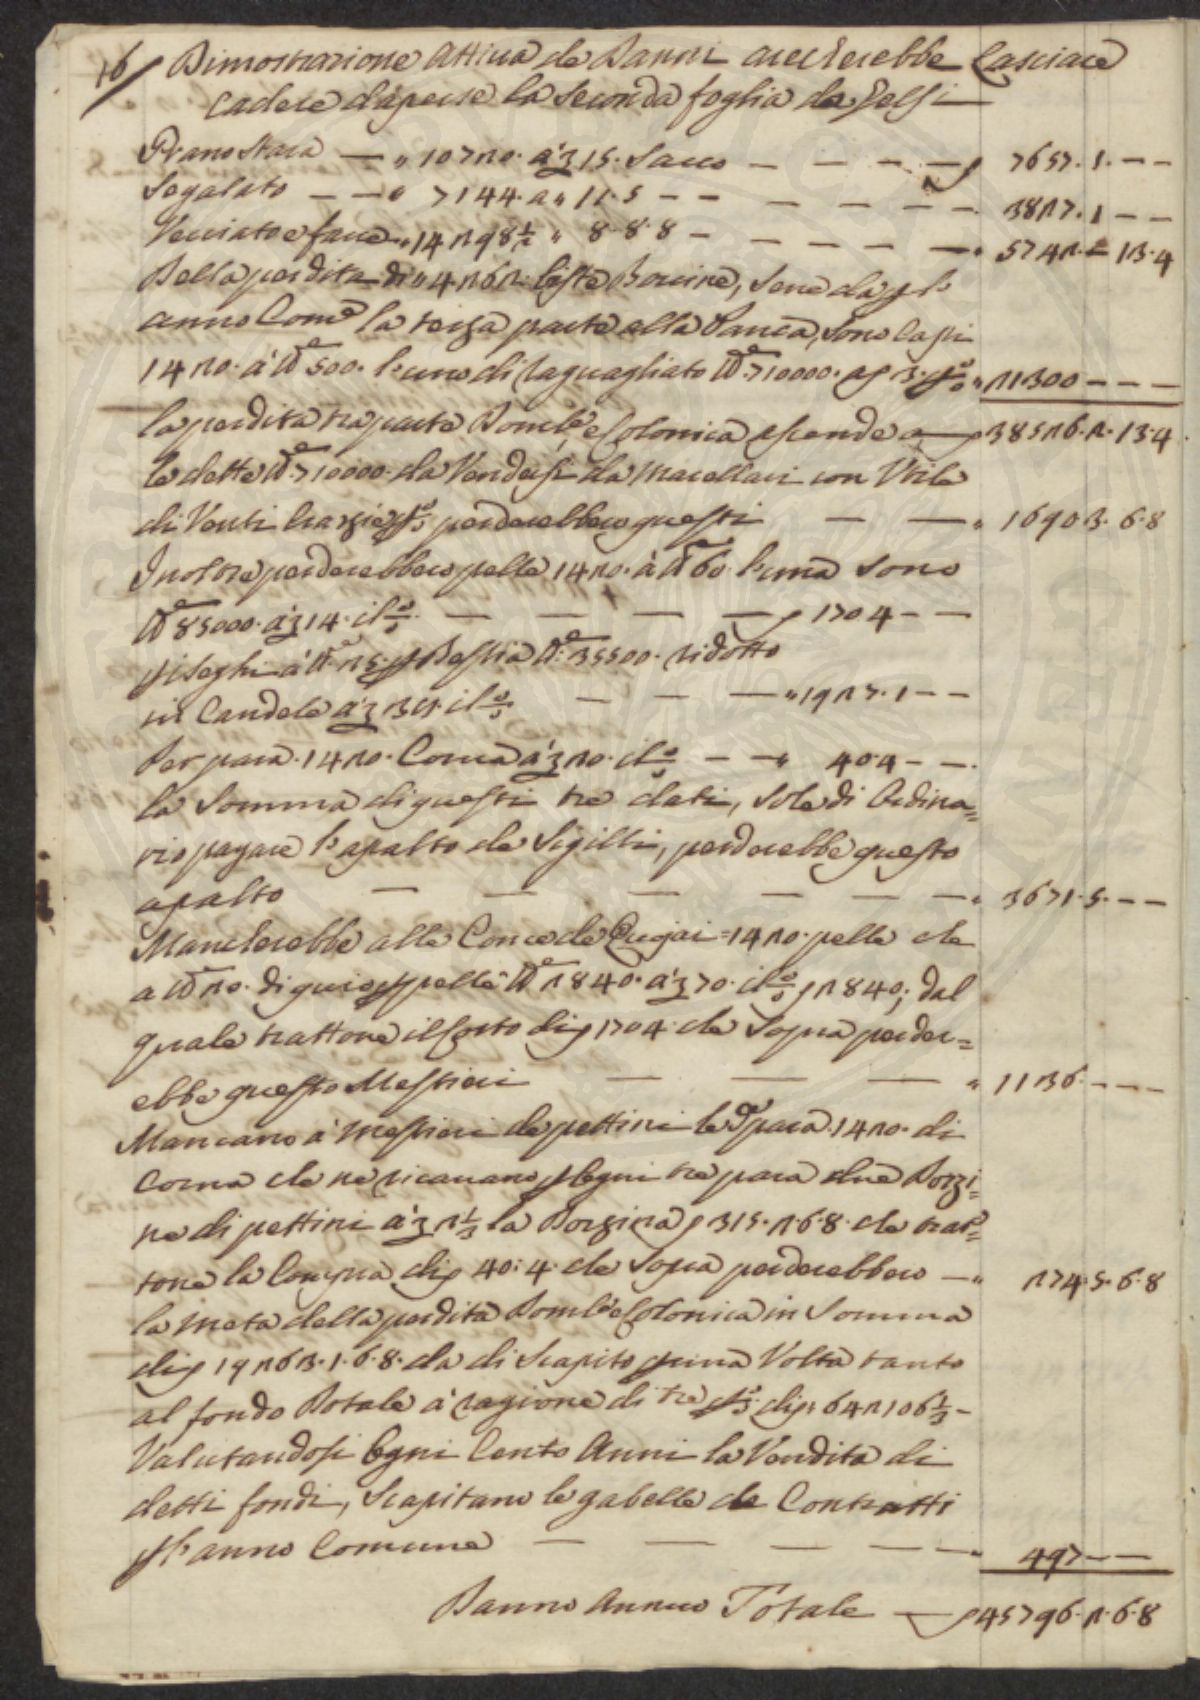 16/ Dimostrazione Attiva de Danni arecherebbe Lasciare
cadere da persè la Seconda foglia de Gelsi
Grano Stara — " 10720. a' 15. Sacco — — — — 7657. 1. — —
Segalato — — " 7144. a " 11. 5 — — — — — — 3827. 1 — —
Vecciato e fave " 14298½ " 8. 8. 8 — — — — — " 5742. 2. 13. 4
Della perdita di " 4262. Bestie Bovine, Se ne dà p l'
anno Come la terza parte alla Panca, Sono Capi
1420. à 500. l'uno di raguagliato 710000. 3. " 21300 — — —
la perdita tra parte Domle e Colonica ascende a — 38526. 2. 13. 4
le dette 710000. da Vendersi da Macellari con Utile
di Venti Crazie perderebbero questi — — " 16903. 6. 8
Inoltre perderebbero pelle 1420. à 60. l'una Sono
85000. a' 14. il — — — — 1704 — —
pi Seghi à 25. Bestia 35500. ridotto
in Candele a' 38. il — — — " 1927. 1 — —
Per para. 1420. Corna a' 20. il — — " 40. 4 — —
la Somma di questi tre dati, Sole di Ordina=
rio pagare l'apalto de Sigilli, perderebbe questo
apalto — — — — — — " 3671. 5. — —
Mancherebbe alle Conce de Cuojai = 1420. pelle che
a 20. di quoio p pelle 2840. a' 70. il 2840; dal
quale trattone il Costo di 1704 che Sopra perder=
ebbe questo Mestiere — — — " 1136. — — —
Mancano a' Mestieri de pettini le de para. 1420. di
Corna che ne ricavano p Ogni tre para due Dozzi=
ne di pettini a' 2⅓ la Dozzina 315. 2. 6. 8. che trat=
tone la Compra di 40: 4. che Sopra perderebbero — " 274. 5. 6. 8
la meta della perdita Domle e Colonica in Somma
di 19263. 1. 6. 8. da di Scapito p una Volta tanto
al fondo Totale à ragione di tre di 642106⅓ —
Valutandosi Ogni Cento Anni la Vendita di
detti fondi, Scapitano le gabelle de Contratti
p l'anno Comune — — — — " 497 — —
Danno Annuo Totale — 45796. 2. 6. 8